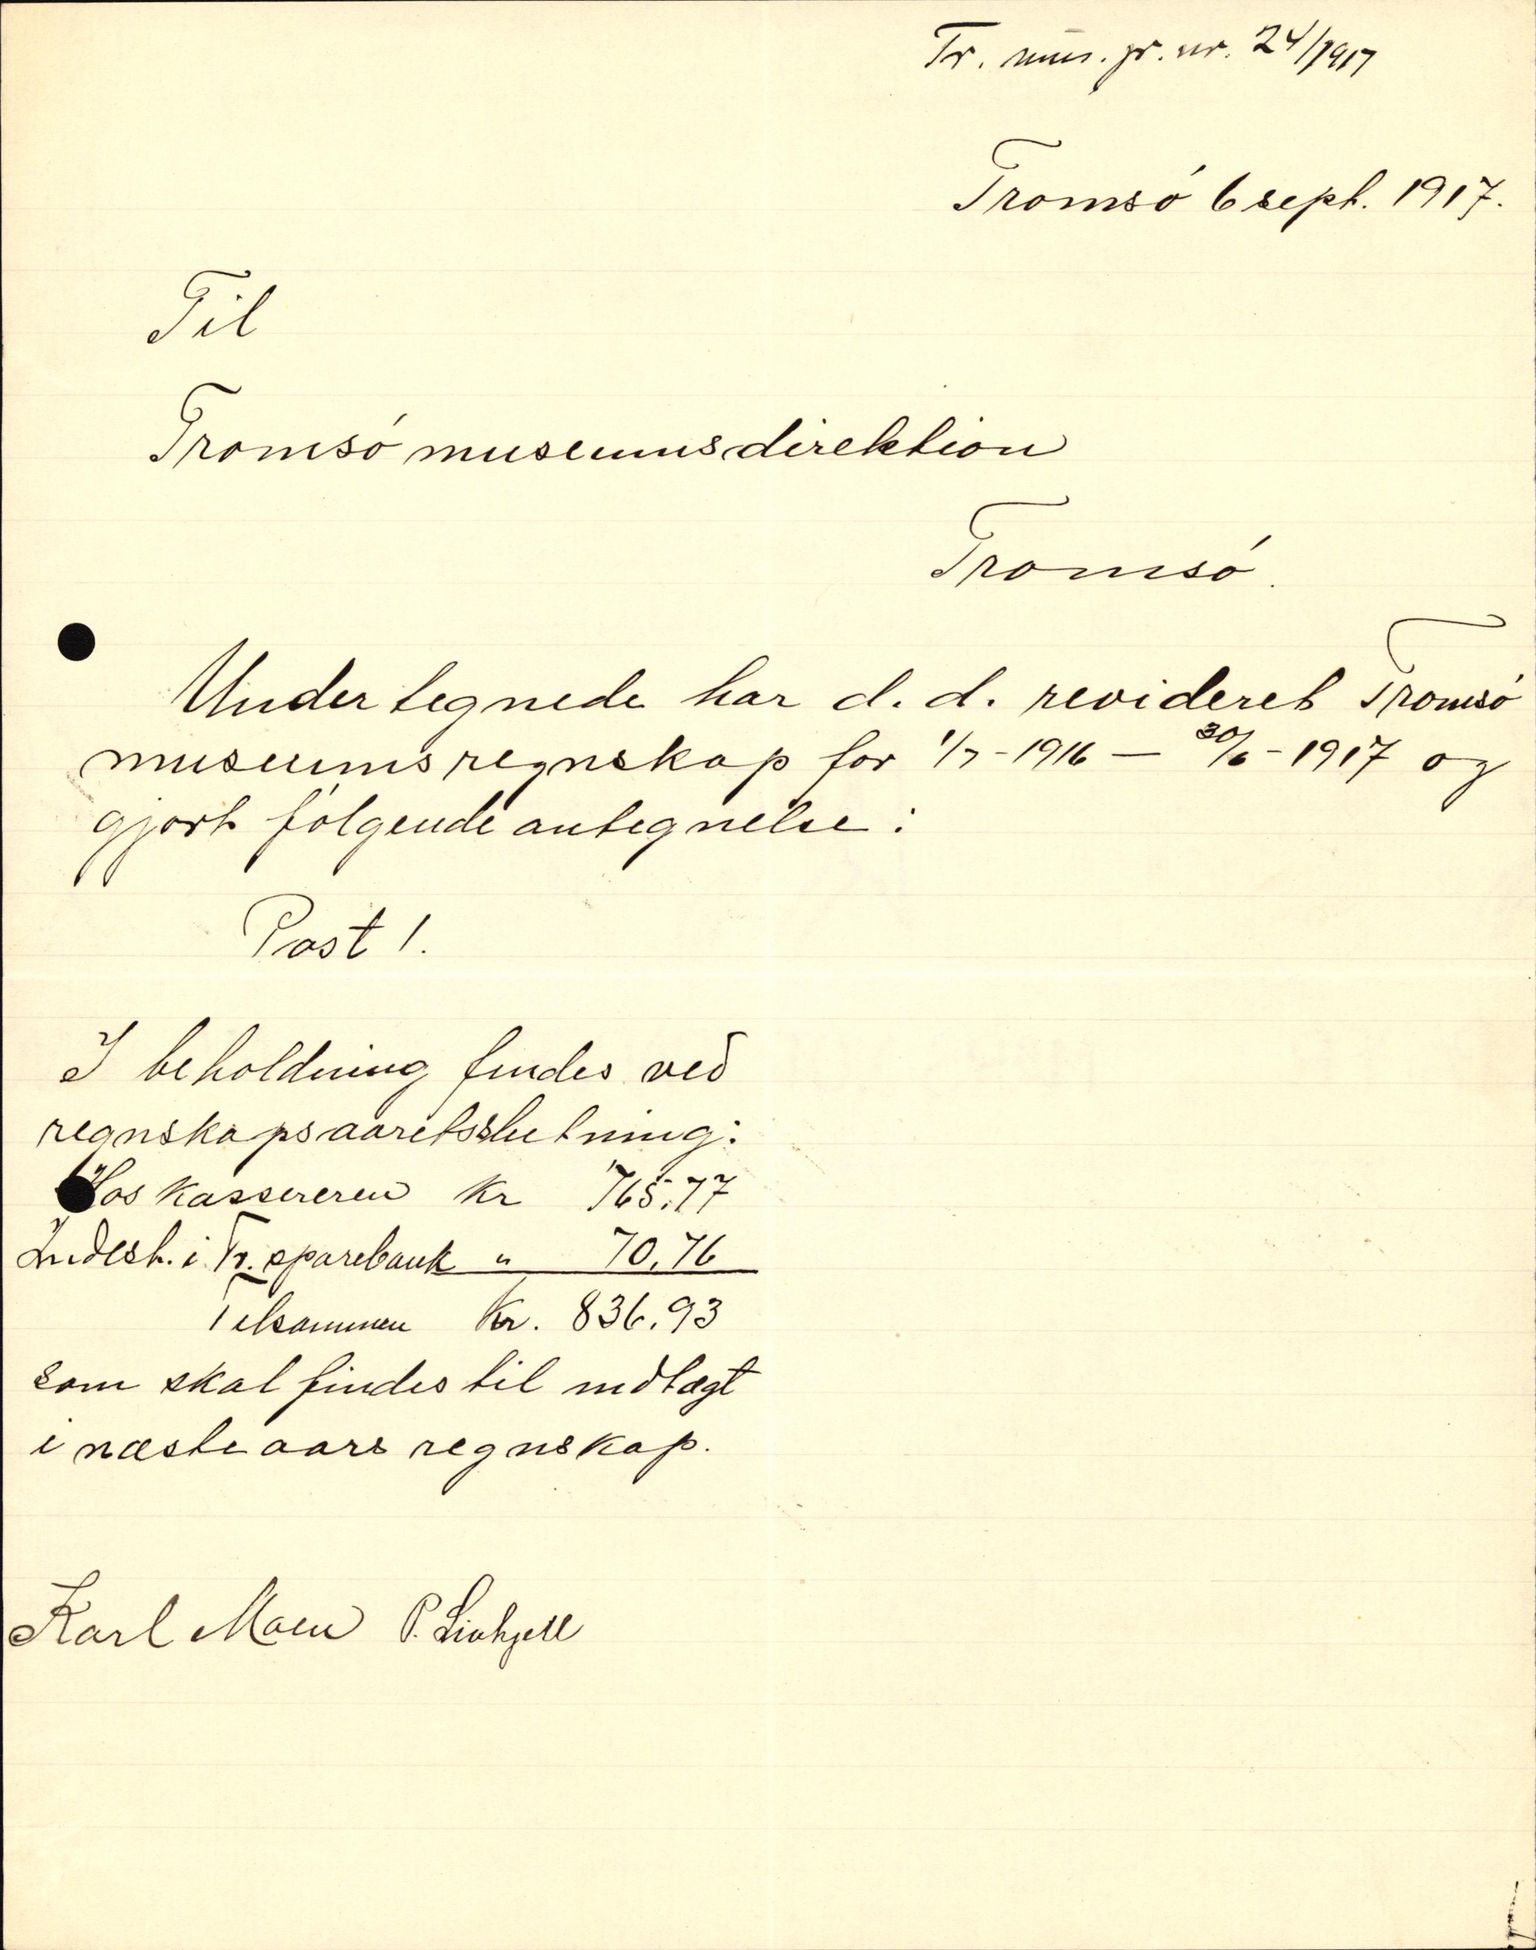 Tr. mus. jr. nr. 24/1917
Tromsó 6 sept. 1917.
Til
Tromsó museumsdirektion
Tromsó.
Undertegnede har d. d. revideret Tromsó
museumsregnskap for 1/7 - 1916 — 30/6 - 1917 og
gjort fólgende antegnelse:
Post 1.
I beholdning findes ved
regnskapsaaretsslutning:
Hos kassereren kr 765,77
Indest. i Tr. sparebank " 70,76
Tilsammen kr. 836,93
som skal findes til indtægt
i næste aars regnskap.
Karl Moen P.